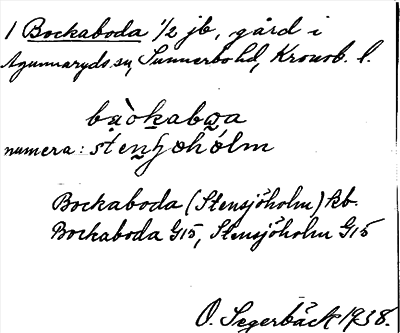 1 Bockaboda 1/2 jb, gård i
Agunnaryds sn, Sunnerbo hd, Kronob. l.
bạ̀òkabo̰a
numera: stenʃøhólm
Bockaboda (Stensjöholm) kb.
Bockaboda G15, Stensjöholm G15
O. Segerbäck 1938.